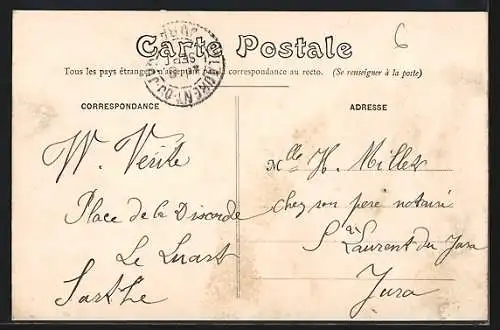 6
Carte Postale
Tous les pays étrangers n'acceptent pas la correspondance au recto. (Se renseigner à la poste)
CORRESPONDANCE
ADRESSE
W. Verite
Place de la Discorde
Le Luart
Sarthe
Mlle H. Millet
chez son père notaire
St Laurent du Jura
Jura